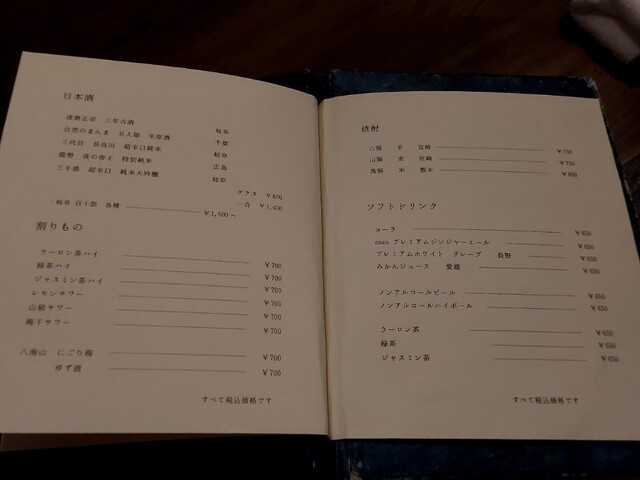 日本酒
達磨正宗 三年古酒 岐阜
自然のまんま 五人娘 生原酒 千葉
三代目 長良川 超辛口純米 岐阜
龍勢 夜の帝王 特別純米 広島
三千盛 超辛口 純米大吟醸 岐阜
グラス ￥800
一合 ￥1,400
岐阜 百十郎 各種 ￥1,600～
割りもの
ウーロン茶ハイ ￥700
緑茶ハイ ￥700
ジャスミン茶ハイ ￥700
レモンサワー ￥700
山椒サワー ￥700
梅干サワー ￥700
八海山 にごり梅 ￥700
ゆず酒 ￥700
すべて税込価格です
焼酎
山猫 芋 宮崎 ￥750
山猫 麦 宮崎 ￥750
鳥飼 米 熊本 ￥800
ソフトドリンク
コーラ ￥650
プレミアムジンジャーエール ￥650
プレミアムホワイト グレープ 長野 ￥650
みかんジュース 愛媛 ￥650
ノンアルコールビール ￥650
ノンアルコールハイボール ￥650
ウーロン茶 ￥650
緑茶 ￥650
ジャスミン茶 ￥650
すべて税込価格です